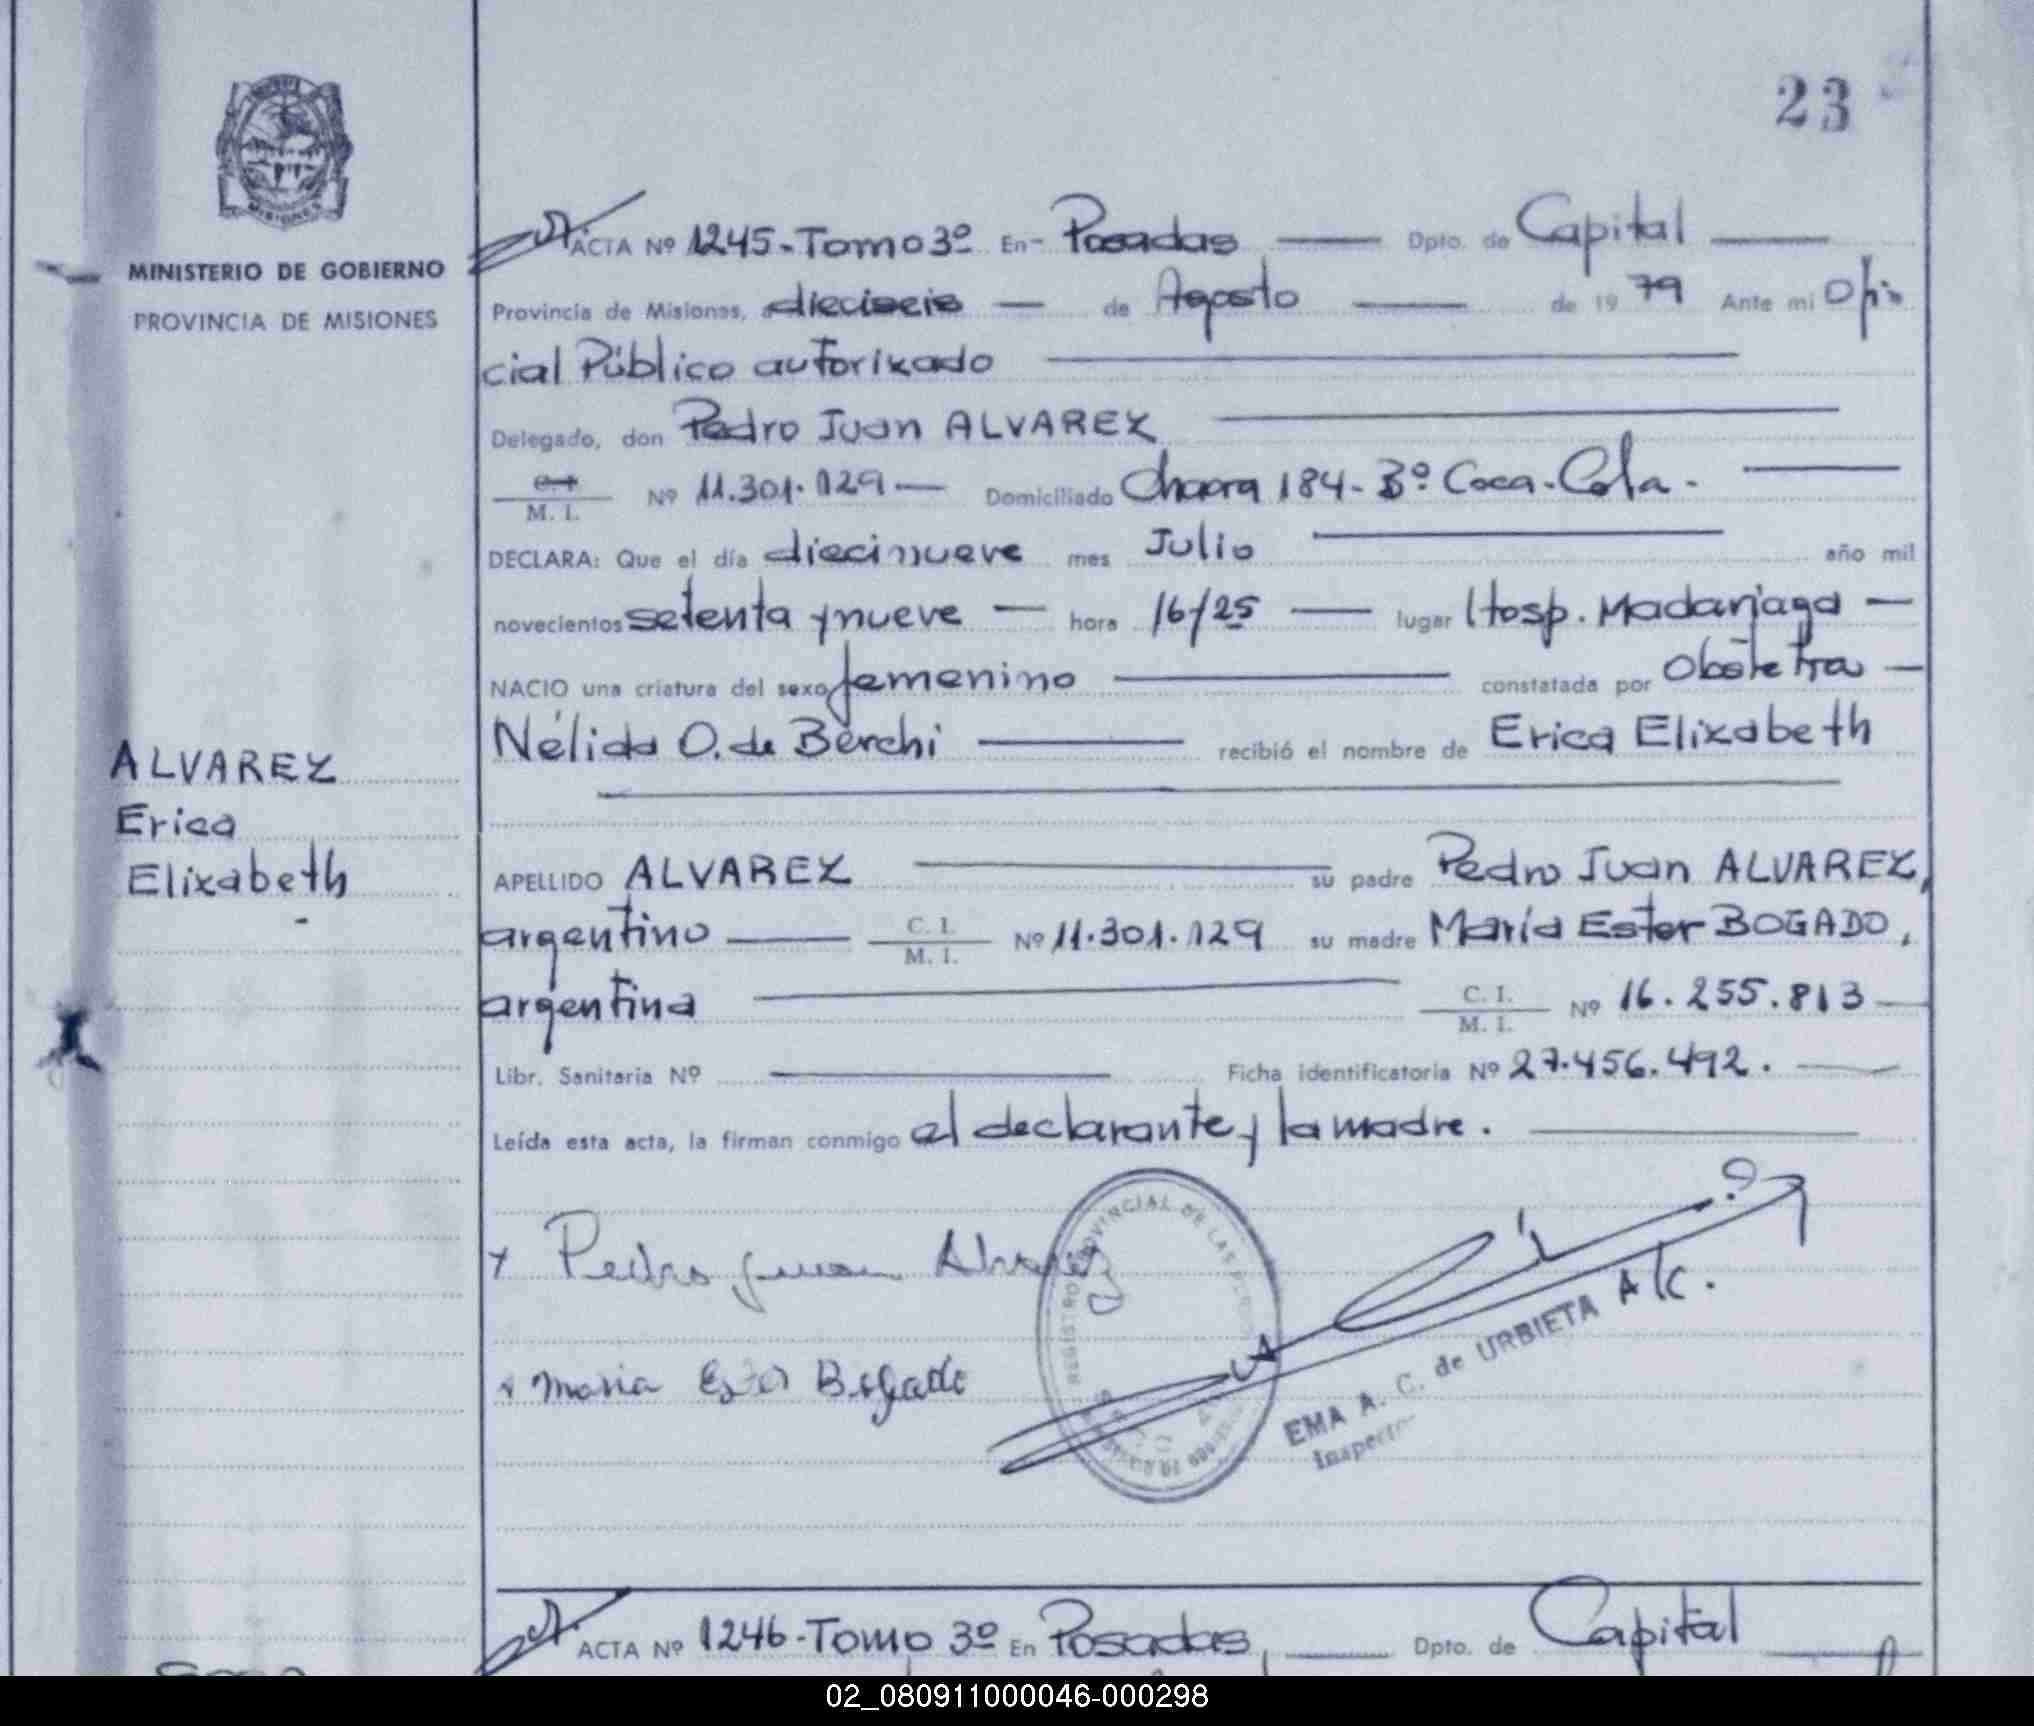 23
MISIONES
MINISTERIO DE GOBIERNO
PROVINCIA DE MISIONES
ALVAREZ
Erica
Elizabeth
ACTA Nº 1245-Tomo 3º En Posadas Dpto. de Capital
Provincia de Misiones, a dieciseis de Agosto de 1979 Ante mi Ofi
cial Público autorizado
Delegado, don Pedro Juan ALVAREZ
C. I. / M. I. Nº 11.301.129 Domiciliado Chacra 184-Bº Coca-Cola.
DECLARA: Que el día diecinueve mes Julio año mil
novecientos setenta y nueve hora 16/25 lugar Hosp. Madariaga
NACIO una criatura del sexo femenino constatada por Obstetra
Nélida O. de Berchi recibió el nombre de Erica Elizabeth
APELLIDO ALVAREZ su padre Pedro Juan ALVAREZ,
argentino C. I. / M. I. Nº 11.301.129 su madre María Ester BOGADO,
argentina C. I. / M. I. Nº 16.255.813
Libr. Sanitaria Nº Ficha identificatoria Nº 27.456.492.
Leída esta acta, la firman conmigo el declarante y la madre.
x Pedro Juan Alvarez
x Maria Ester Bogado
REGISTRO PROVINCIAL DE LAS
EMA A. C. de URBIETA A/C.
Inspector
ACTA Nº 1246-Tomo 3º En Posadas, Dpto. de Capital
02_080911000046-000298